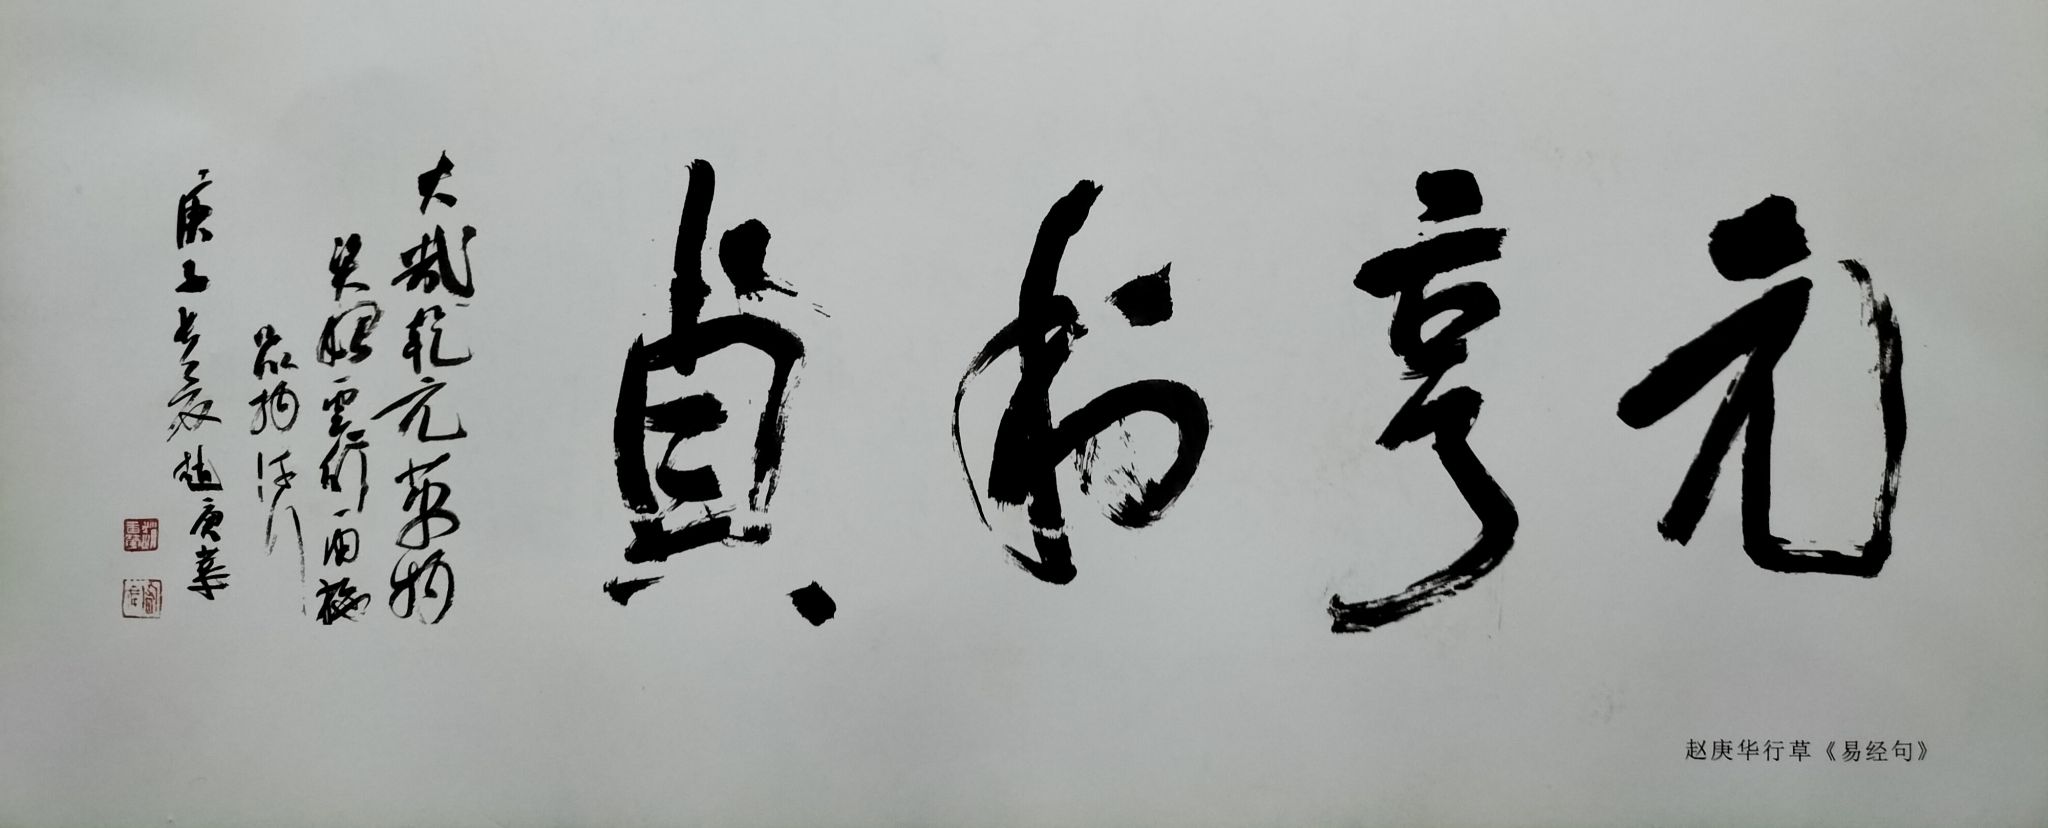 元亨利貞
大哉乾元萬物
資始雲行雨施
品物流
庚子長夏趙庚華
赵庚华行草《易经句》